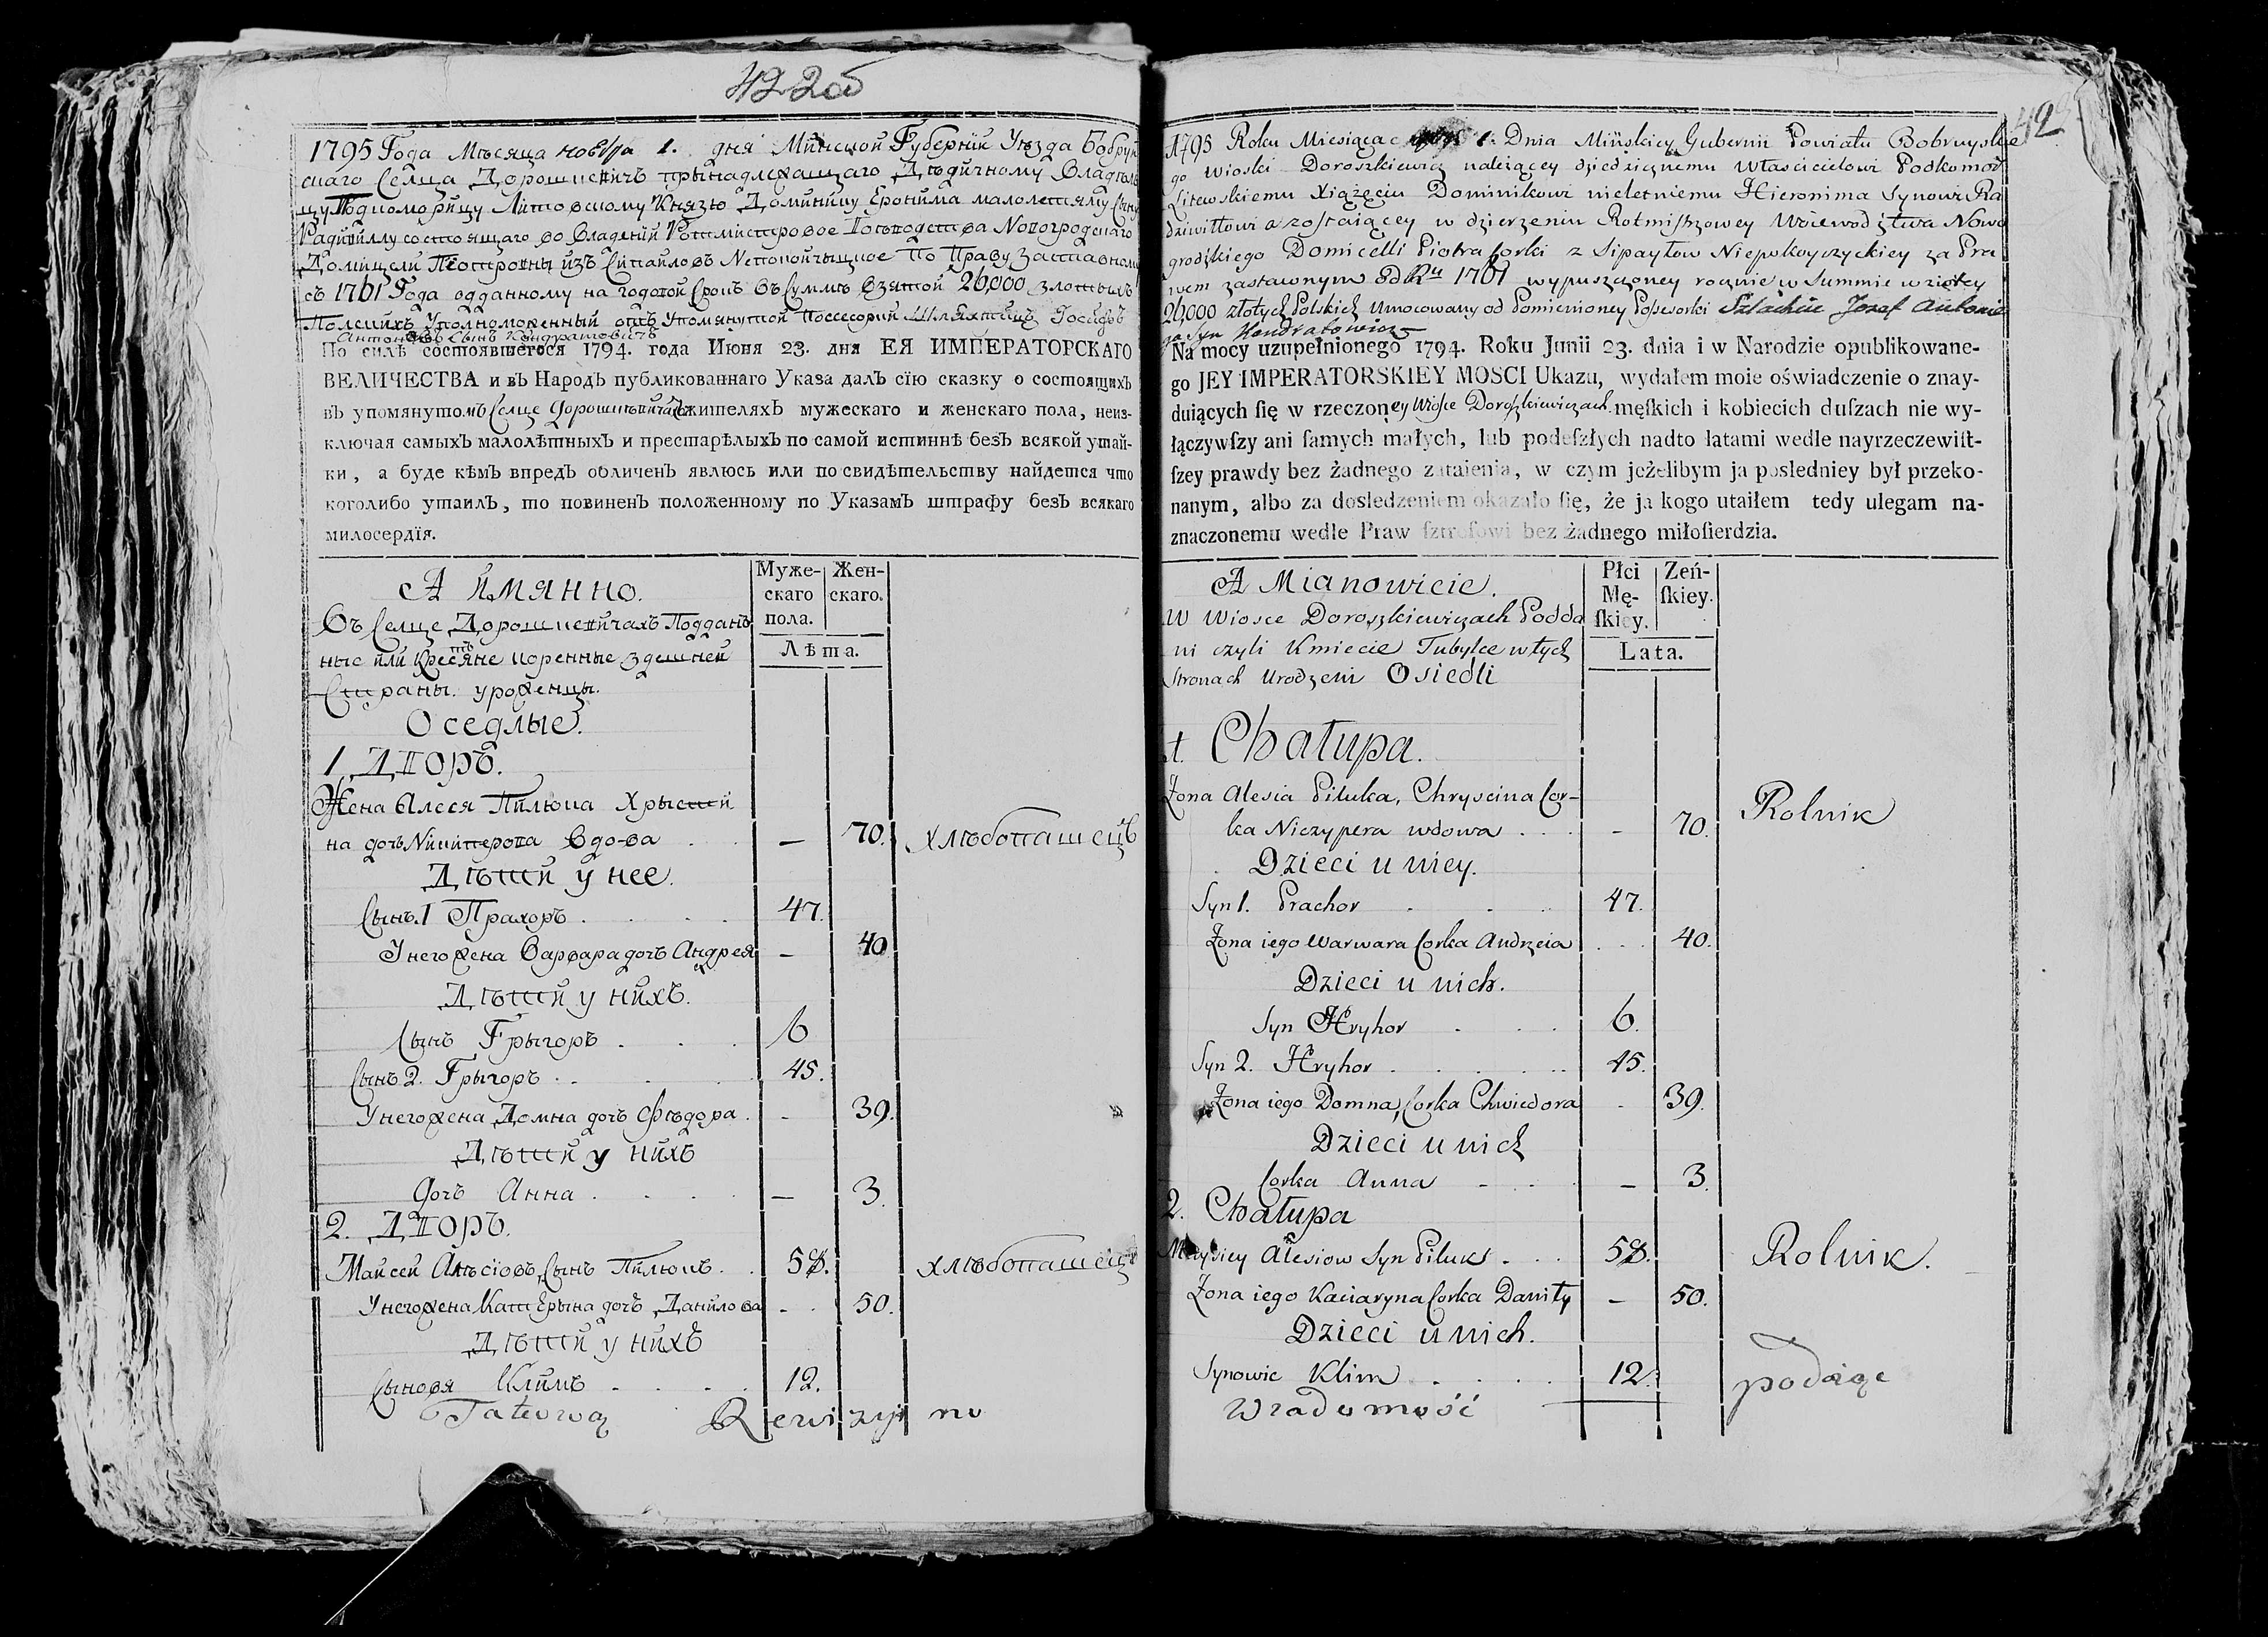 422об
1795 Года Мѣсяца ноября 1. дня Минской Губернїи Уѣзда Бобруй
скаго Селца Дорошкевичъ прынадлежащаго Дѣдичному Владѣль
цу Подкоморыцу Литовскому Князю Доминику Еронима малолетняму Сыну
Радивиллу состоящаго во Владенїи Ротмистровое Воеводства Новогродскаго
Домицели Піотровны изъ Сипайловъ Непокойчыцкое По Праву Заставному
съ 1761 Года одданному на годовой Срокъ въ Суммѣ взятой 26,000 злотыхъ
Полскихъ Уполноможенный отъ Упомянутой Поссесорки Шляхтичъ Іосифъ
Антоновъ Сынъ Кондратовичъ
По силѣ состоявшегося 1794. года Июня 23. дня ЕЯ ИМПЕРАТОРСКАГО
ВЕЛИЧЕСТВА и въ Народъ публикованнаго Указа далъ сїю сказку о состоящихъ
въ упомянутомъ Селце Дорошкевичахъ жителяхъ мужескаго и женскаго пола, неиз-
ключая самыхъ малолѣтныхъ и престарѣлыхъ по самой истиннѣ безъ всякой утай-
ки, а буде кѣмъ впредъ обличенъ явлюсь или по свидѣтельству найдется что
коголибо утаилъ, то повиненъ положенному по Указамъ штрафу безъ всякаго
милосердїя.
А Имянно.
Муже-
скаго
пола.
Жен-
скаго.
Лѣта.
Въ Селце Дорошкевичахъ Поддан
ные или Крестяне коренные здешней
Страны уроженцы.
Оседлые.
1 Дворъ.
Жена Алеся Пилюка Хрысти
на дочь Никиперова Вдова — 70. хлѣбопашецъ
Дѣти у нее.
Сынъ 1 Прахоръ 47.
У него жена Варвара дочь Андрея — 40
Дѣти у нихъ.
Сынъ Грыгоръ 6
Сынъ 2. Грыгоръ 45.
У него жена Домна дочь Ѳѣдора - 39.
Дѣти у нихъ
Дочь Анна — 3.
2. Дворъ.
Майсей Алѣсіовъ Сынъ Пилюкъ 58. хлѣбопашецъ
У него жена Катерына дочь Данилова - 50.
Дѣти у нихъ
Сыновя Климъ 12.
Takową Rewizyjną
428
1795 Roku Miesiąca 1. Dnia Mińskiey Gubernii Powiatu Bobruyskie
go Wioski Doroszkiewicz należącey dziedzicznemu Właścicielowi Podkomorz
Litewskiemu Xiążęciu Dominikowi nieletniemu Hieronima Synowi Ra
dziwiłłowi a zostaiącey w dzierzeniu Rotmistrzowey Woiewodztwa Nowo
grodzkiego Domicelli Piotra Corki z Sipayłow Niepokoyczyckiey za Pra
wem zastawnym od Ru 1761 wypuszczoney rocznie w Summie wziętey
26,000 złotych Polskich Umocowany od Pomienioney Possesorki Szlachcic Jozef Antonie
go Syn Kondratowicz
Na mocy uzupełnionego 1794. Roku Junii 23. dnia i w Narodzie opublikowane-
go JEY IMPERATORSKIEY MOSCI Ukazu, wydałem moie oświadczenie o znay-
duiących ſię w rzeczoney Wiosce Doroszkiewiczach męſkich i kobiecich duſzach nie wy-
łączywſzy ani ſamych małych, lub podeſzłych nadto łatami wedle nayrzeczewiſt-
ſzey prawdy bez żadnego zataienia, w czym jeżelibym ja posledniey był przeko-
nanym, albo za dosledzeniem okazało ſię, że ja kogo utaiłem tedy ulegam na-
znaczonemu wedle Praw ſztrofowi bez żadnego miłoſierdzia.
A Mianowicie.
Płci
Mę-
ſkiey.
Zeń-
ſkiey.
Lata.
W Wiosce Doroszkiewiczach Podda
ni czyli Kmiecie Tubylce w tych
Stronach Urodzeni Osiedli
1. Chałupa.
Żona Alesia Piluka, Chryscina Cor-
ka Niczypera wdowa - 70. Rolnik
Dzieci u niey.
Syn 1. Prachor 47.
Żona iego Warwara Corka Andrzeia 40.
Dzieci u nich.
Syn Hryhor 6.
Syn 2. Hryhor 45.
Żona iego Domna, Corka Chwiedora - 39.
Dzieci u nich
Corka Anna - 3.
2. Chałupa
Maysiey Alesiow Syn Piluk 58. Rolnik.
Żona iego Kaciaryna Corka Daniły — 50.
Dzieci u nich.
Synowie Klim 12.
Wiadomość podaję